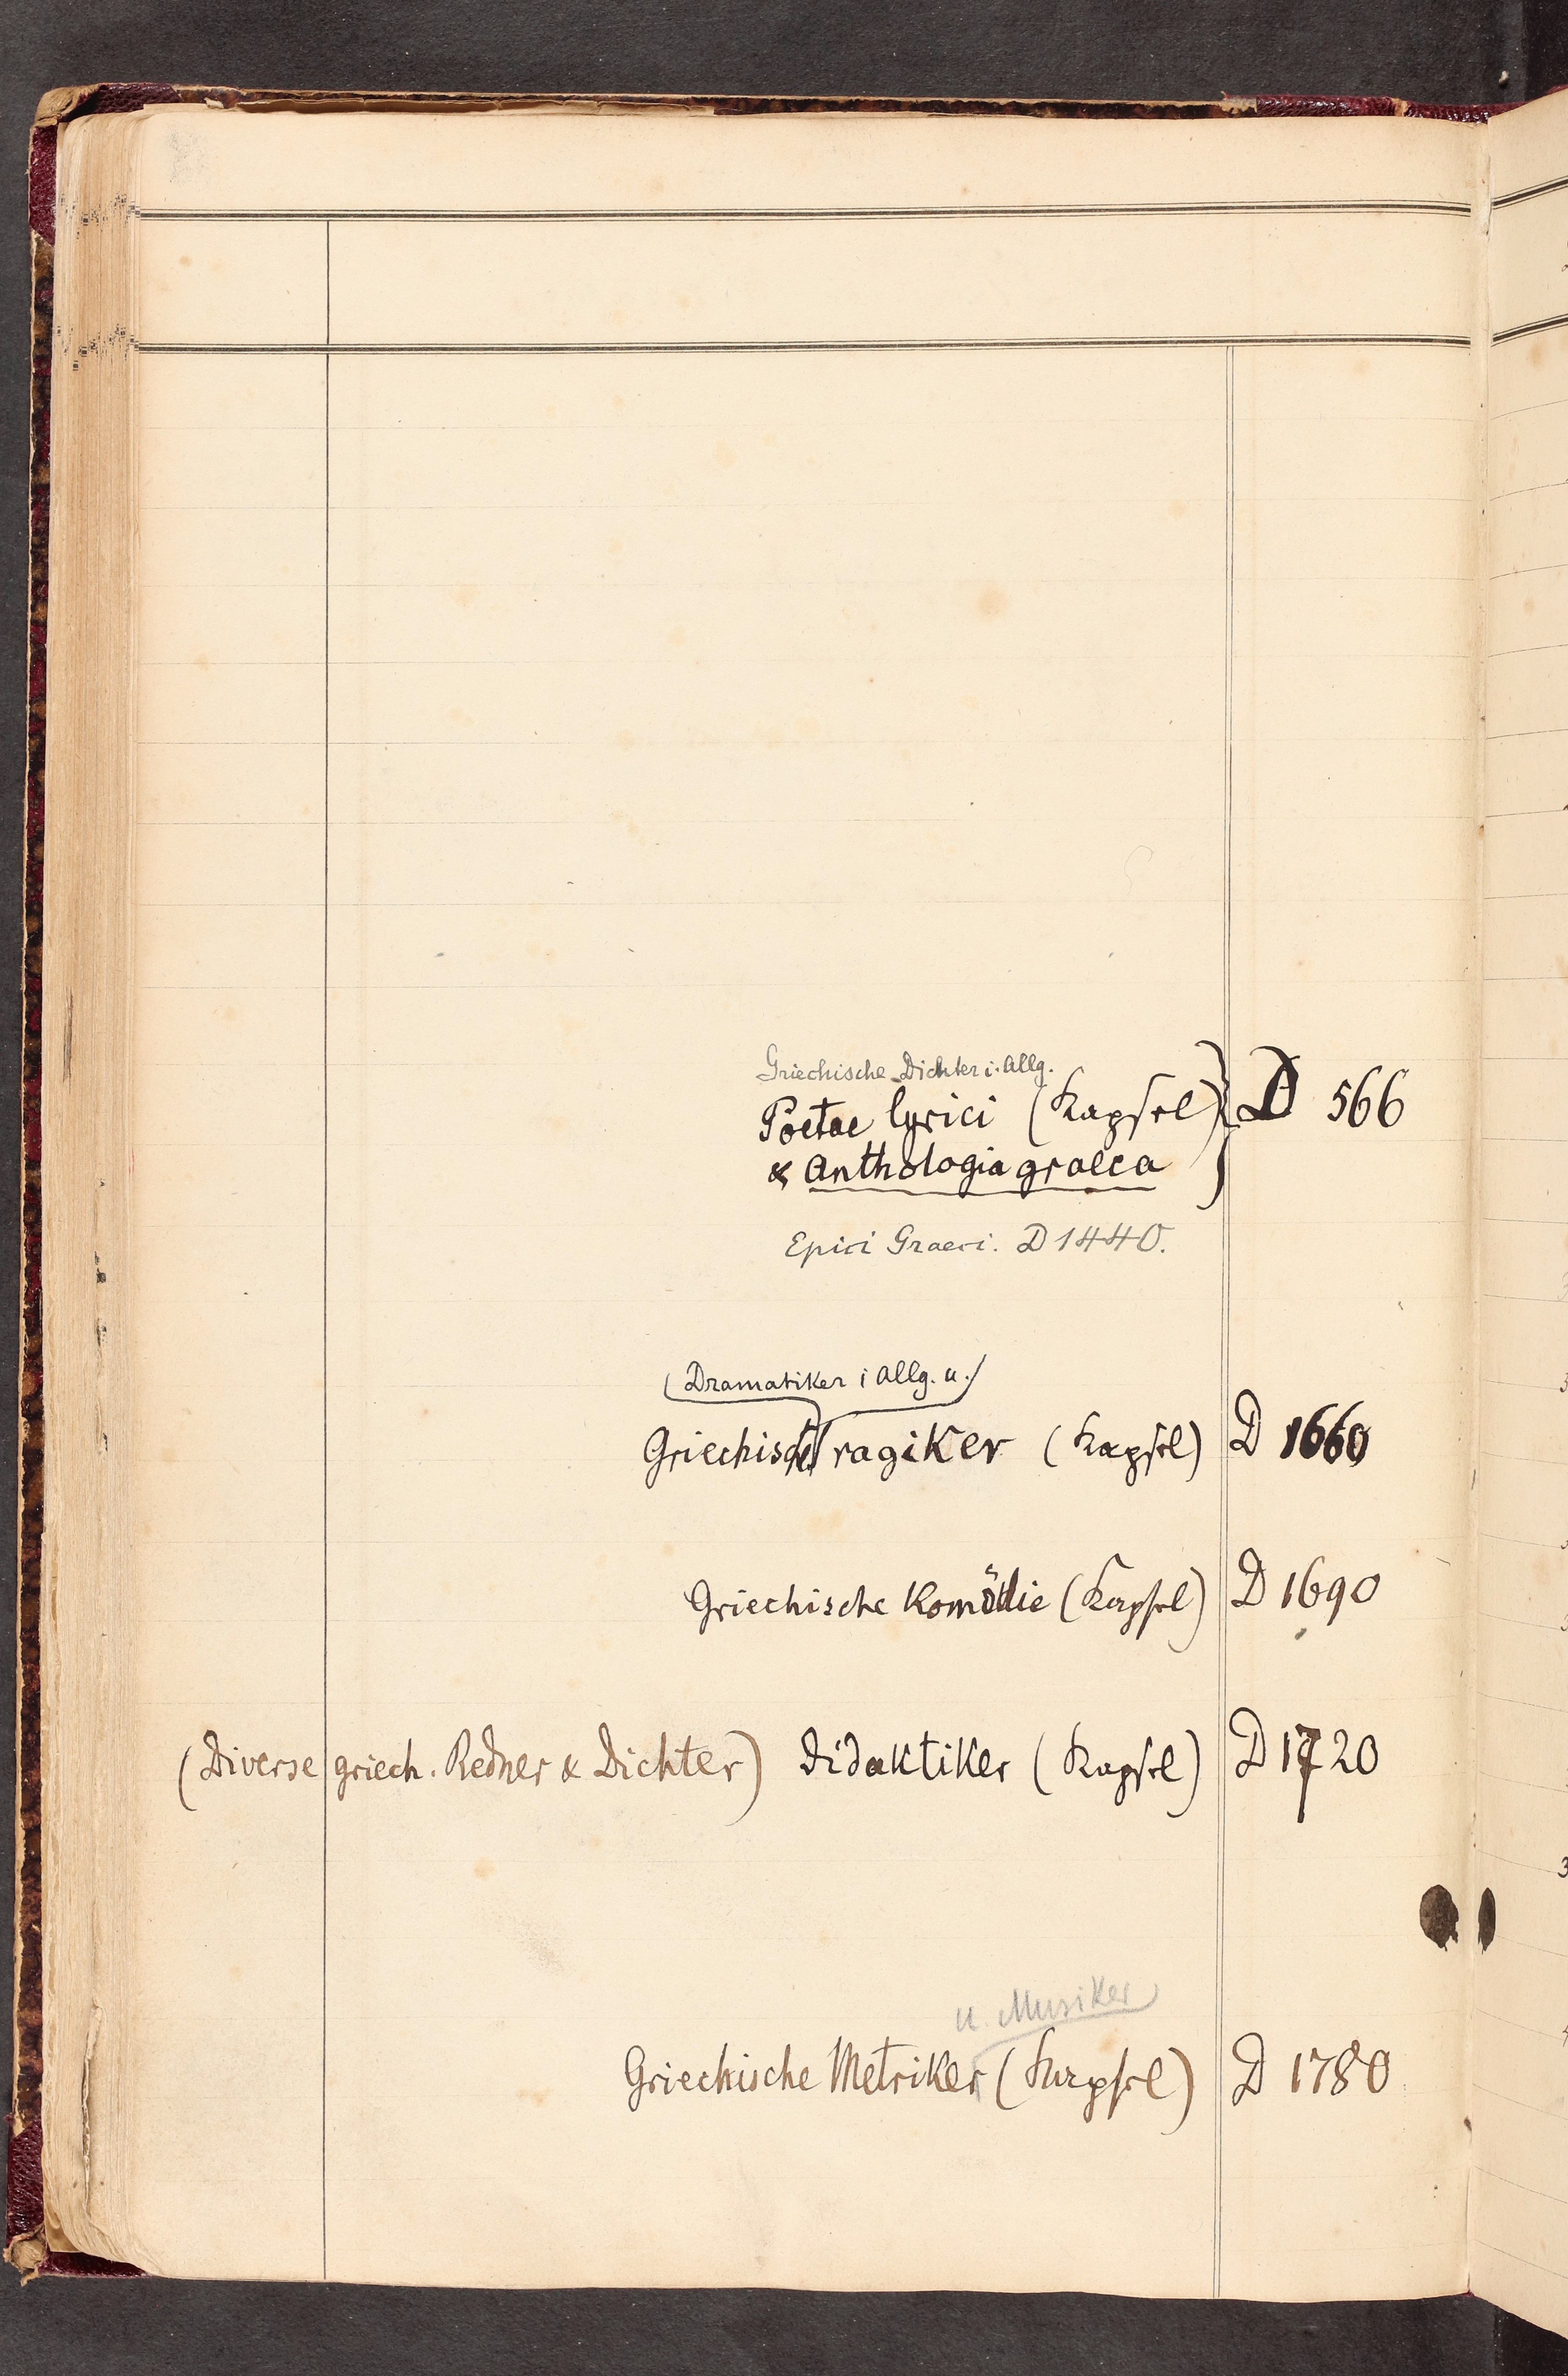 Griechische Dichter i. Allg.
Poetae lyrici (Kapsel) } D 566
& Anthologia graeca
Epici Graeci. D 1440.
(Dramatiker i Allg. u.)
Griechische Tragiker (Kapsel) D 1660
Griechische Komödie (Kapsel) D 1690
(Diverse griech. Redner & Dichter) Didaktiker (Kapsel) D 1720
u. Musiker
Griechische Metriker (Kapsel) D 1780